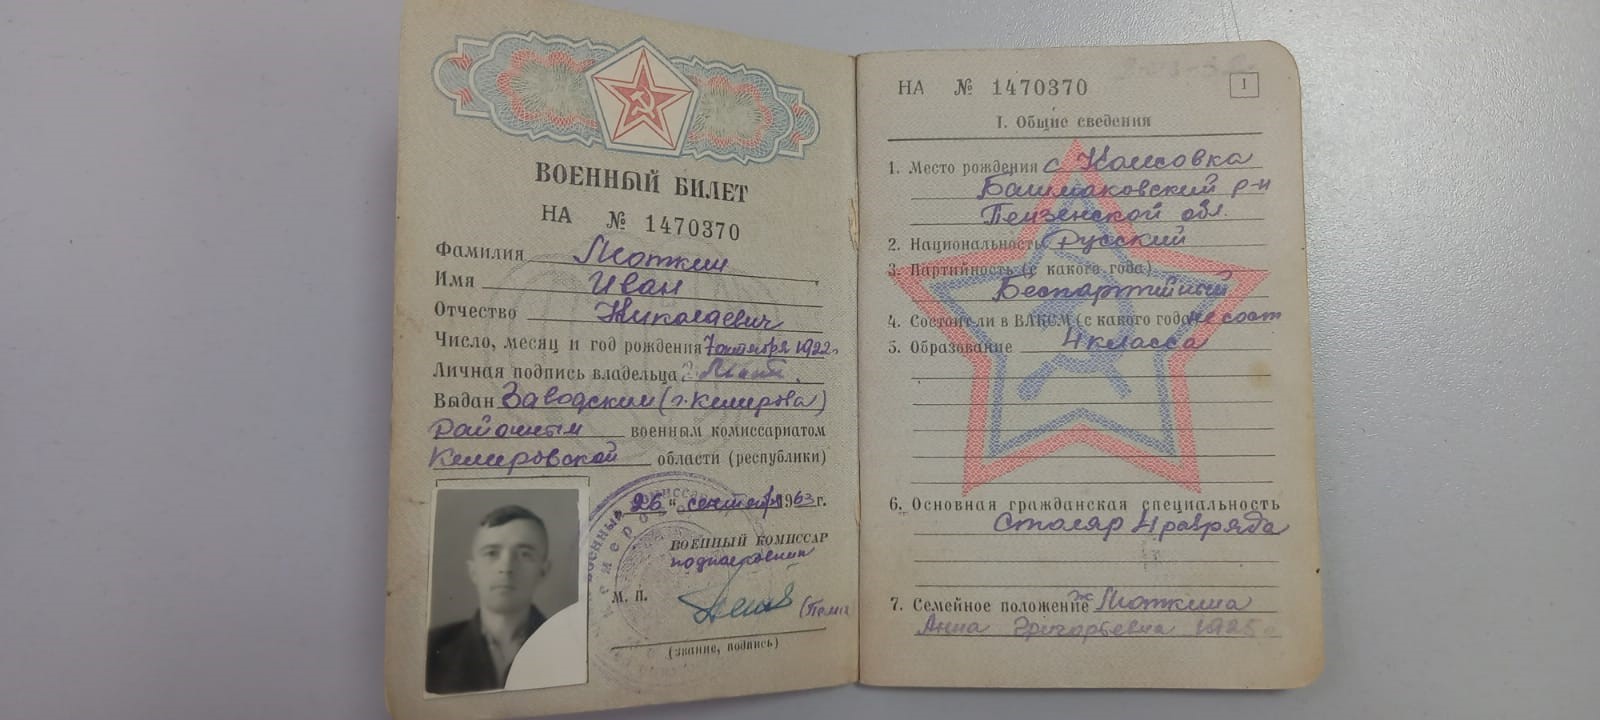 ВОЕННЫЙ БИЛЕТ
НА № 1470370
Фамилия
Имя Иван
Отчество Николаевич
Число, месяц и год рождения 7 октября 1922
Личная подпись владельца
Выдан Заводским (г. Кемерова)
Районным военным комиссариатом
Кемеровской области (республики)
"26" сентября 1963 г.
ВОЕННЫЙ КОМИССАР
подполковник
М. п.
(звание, подпись)
НА № 1470370
1
I. Общие сведения
1. Место рождения с.
Башмаковский р-н
Пензенской обл.
2. Национальность Русский
3. Партийность (с какого года)
Беспартийный
4. Состоит ли в ВЛКСМ (с какого года) не сост
5. Образование 4 класса
6. Основная гражданская специальность
Столяр 4 разряда
7. Семейное положение ж
Анна Григорьевна 1925